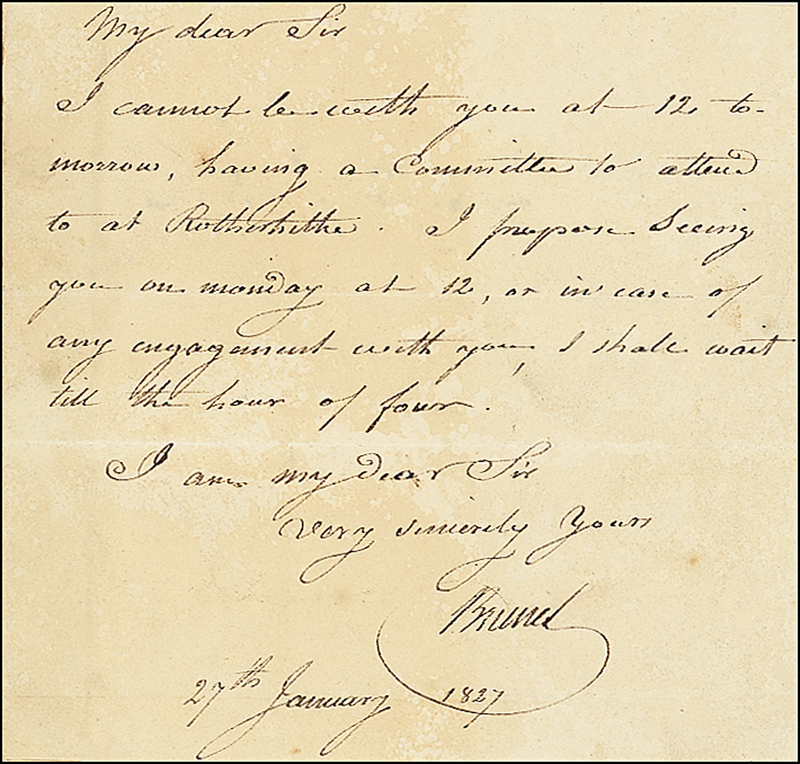 My dear Sir
I cannot be with you at 12 to-
morrow, having a Committee to attend
to at Rotherhithe. I propose Seeing
you on monday at 12, or in case of
any engagement with you, I shall wait
till the hour of four.
I am my dear Sir
Very sincerely Yours
Brunel
27th January 1827